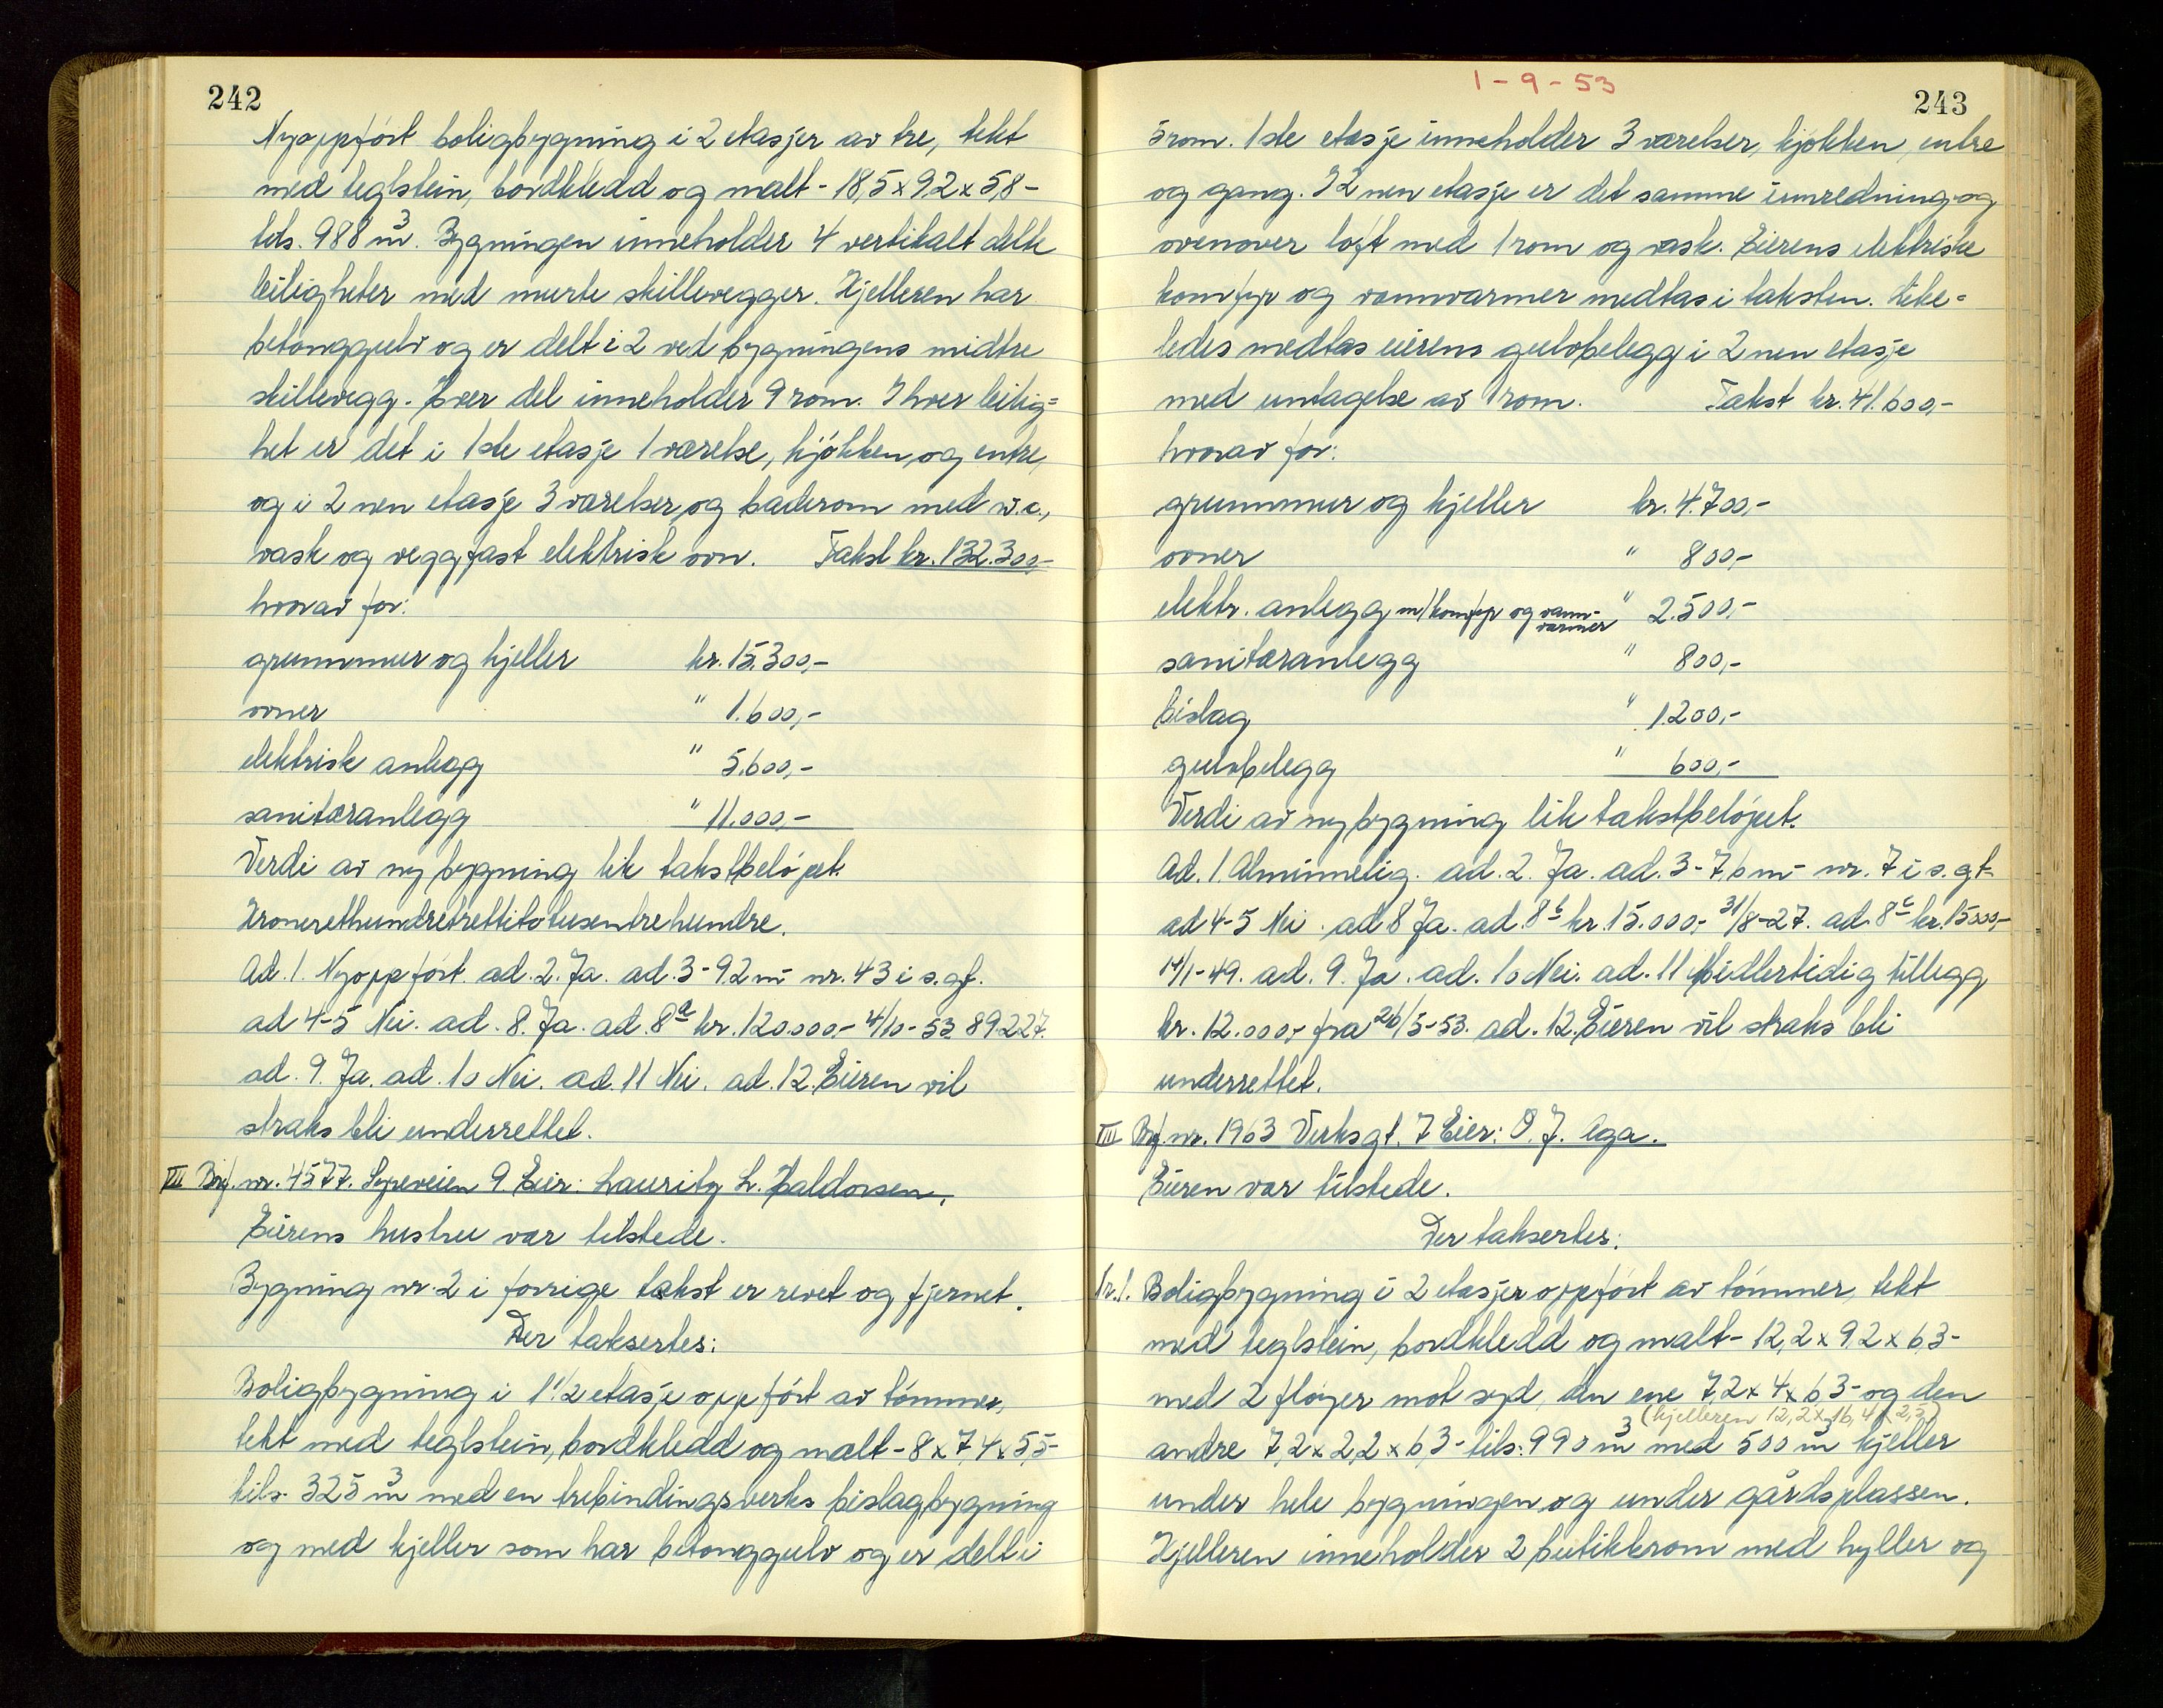 242
Nyoppført boligbygning i 2 etasjer av tre, tekt
med teglstein, bordkledd og malt - 18,5 x 9,2 x 5,8 -
tils. 988 m³. Bygningen inneholder 4 vertikalt delte
leiligheter med murte skillevegger. Kjelleren har
betonggulv og er delt i 2 ved bygningens midtre
skillevegg. Hver del inneholder 9 rom. I hver leilig=
het er det i 1ste etasje 1 værelse, kjøkken og entre,
og i 2nen etasje 3 værelser og baderom med w.c.,
vask og veggfast elektrisk ovn. Takst kr. 132.300,-
hvorav for:
grunnmur og kjeller kr. 15.300,-
ovner " 1.600,-
elektrisk anlegg " 5.600,-
sanitæranlegg " 11.000,-
Verdi av ny bygning lik takstbeløpet.
Kronerethundretrettitotusentrehundre.
Ad. 1. Nyoppført. ad. 2. Ja. ad. 3 - 9.2 m - nr. 43 i s. gt.
ad 4-5 Nei. ad. 8. Ja. ad. 8a kr. 120.000,- 4/10-53 89227.
ad. 9. Ja. ad. 10 Nei. ad. 11 Nei. ad. 12. Eieren vil
straks bli underrettet.
VII Brf. nr. 4577. Lyreveien 9 Eier: Lauritz L. Haldorsen.
Eierens hustru var tilstede.
Bygning nr. 2 i forrige takst er revet og fjernet.
Der taksertes:
Boligbygning i 1 1/2 etasje oppført av tømmer,
tekt med teglstein, bordkledd og malt - 8 x 7,4 x 5,5 -
tils. 325 m³ med en trebindingsverks bislagbygning
og med kjeller som har betonggulv og er delt i
1-9-53
243
5 rom. 1ste etasje inneholder 3 værelser, kjøkken, entre
og gang. I 2nen etasje er det samme innredning og
ovenover loft med 1 rom og vask. Eierens elektriske
komfyr og vannvarmer medtas i taksten. Like=
ledes medtas eierens gulvbelegg i 2nen etasje
med untagelse av 1 rom. Takst kr. 41.600,-
hvorav for:
grunnmur og kjeller kr. 4.700,-
ovner " 800,-
elektr. anlegg m/komfyr og vann-varmer " 2.500,-
sanitæranlegg " 800,-
bislag " 1.200,-
gulvbelegg " 600,-
Verdi av ny bygning lik takstbeløpet.
Ad. 1. Alminnelig. ad. 2. Ja. ad. 3 - 7,0 m - nr. 7 i s. gt -
ad 4-5 Nei. ad 8 Ja. ad. 8b kr. 15.000,- 31/8-27. ad. 8c kr. 15000,-
14/1-49. ad. 9. Ja. ad. 10 Nei. ad. 11 Midlertidig tillegg
kr. 12.000,- fra 26/5-53. ad. 12. Eieren vil straks bli
underrettet.
VIII Brf. nr. 1963 Verksgt. 7 Eier: O. J. Aga.
Eieren var tilstede.
Der taksertes:
Nr. 1. Boligbygning i 2 etasjer oppført av tømmer, tekt
med teglstein, bordkledd og malt - 12,2 x 9,2 x 6,3 -
med 2 fløyer mot syd, den ene 7,2 x 4 x 6,3 - og den
(kjelleren 12,2 x 16,4 x 2,5)
andre 7,2 x 2,2 x 6,3 - tils: 990 m³ med 500 m³ kjeller
under hele bygningen og under gårdsplassen.
Kjelleren inneholder 2 butikkrom med hyller og